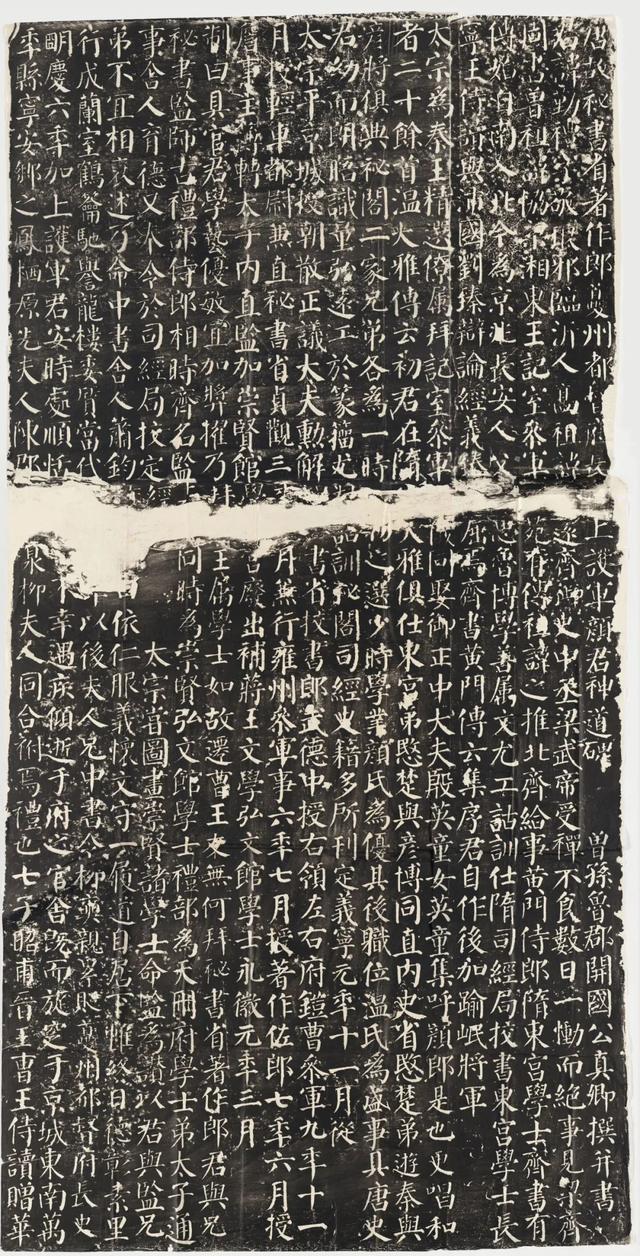 唐故秘書省著作郎夔州都督府長史上護軍顏君神道碑 曾孫魯郡開國公真卿撰并書
君諱勤禮字敬琅邪臨沂人高祖諱遠齊御史中丞梁武帝受禪不食數日一慟而絕事見梁齊
周書曾祖諱協梁湘東王記室參軍苑有傳祖諱之推北齊給事黃門侍郎隋東宮學士齊書有
傳始自南入北今為京兆長安人父思魯博學善屬文尤工詁訓仕隋司經局校書東宮學士長
寧王侍讀與沛國劉臻辯論經義臻屈焉齊書黃門傳云集序君自作後加踰岷將軍
太宗為秦王精選僚屬拜記室參軍儀同娶御正中大夫殷英童女英童集呼顏郎是也更唱和
者二十餘首溫大雅傳云初君在隋大雅俱仕東宮弟愍楚與彥博同直內史省愍楚弟遊秦與
彥將俱典秘閣二家兄弟各為一時物之選少時學業顏氏為優其後職位溫氏為盛事具唐史
君幼而朗晤識量弘遠工於篆籀尤詁訓秘閣司經史籍多所刊定義寧元年十一月從
太宗平京城授朝散正議大夫勳解書省校書郎武德中授右領左右府鎧曹參軍九年十一
月授輕車都尉兼直秘書省貞觀三年月兼行雍州參軍事六年七月授著作佐郎七年六月授
詹事主簿轉太子內直監加崇賢館宮廢出補蔣王文學弘文館學士永徽元年三月
制曰具官君學藝優敏宜加獎擢乃拜王屬學士如故遷曹王友無何拜秘書省著作郎君與兄
秘書監師古禮部侍郎相時齊名監同時為崇賢弘文館學士禮部為天冊府學士弟太子通
事舍人育德又奉令於司經局校定經太宗嘗圖畫崇賢諸學士命監為讚以君與監兄
弟不宜相褒述乃命中書舍人蕭鈞依仁服義懷文守一履道自居下帷終日德彰素里
行成蘭室鶴籥馳譽龍樓委質當代以後夫人兄中書令柳奭親累貶夔州都督府長史
明慶六年加上護軍君安時處順恬不幸遇疾傾逝于府之官舍既而旋窆于京城東南萬
年縣寧安鄉之鳳棲原先夫人陳郡泉柳夫人同合祔焉禮也七子昭甫晉王曹王侍讀贈華